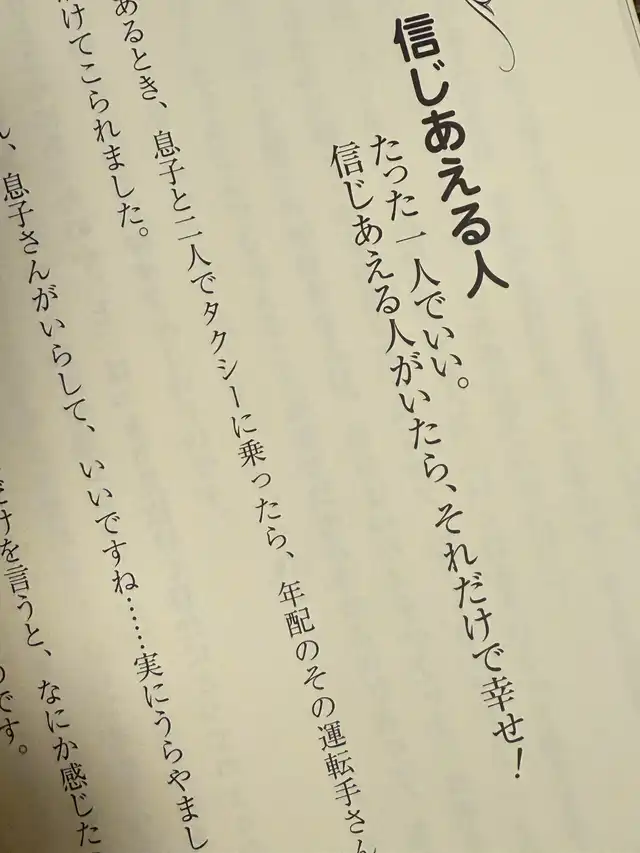 信じあえる人
たった一人でいい。
信じあえる人がいたら、それだけで幸せ！
あるとき、息子と二人でタクシーに乗ったら、年配のその運転手さん
けてこられました。
息子さんがいらして、いいですね……実にうらやまし
だけを言うと、なにか感じた
のです。